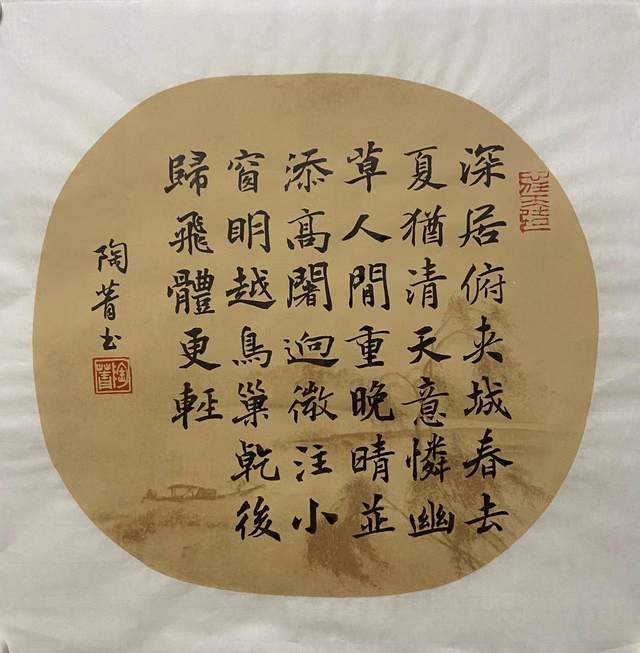 深居俯夾城春去
夏猶清天意憐幽
草人間重晚晴並
添高闍迥微注小
窗明越鳥巢乾後
歸飛體更輕
陶菁书
陶菁